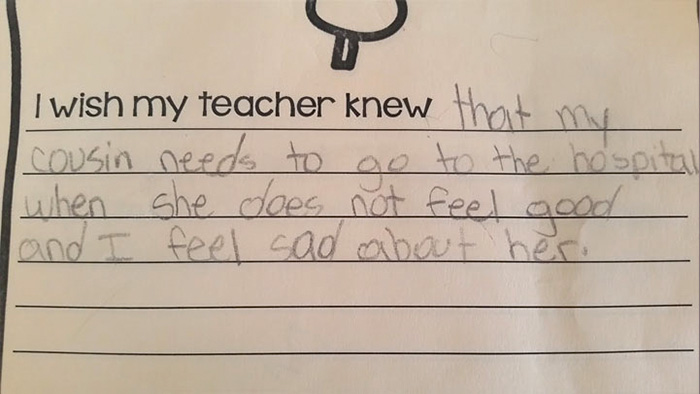 I wish my teacher knew that my
cousin needs to go to the hospital
when she does not feel good
and I feel sad about her.